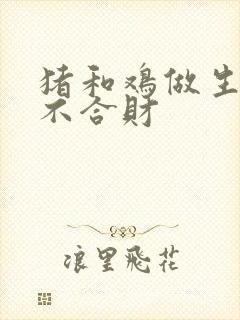 猪和鸡做生
不合财
浪里飛花